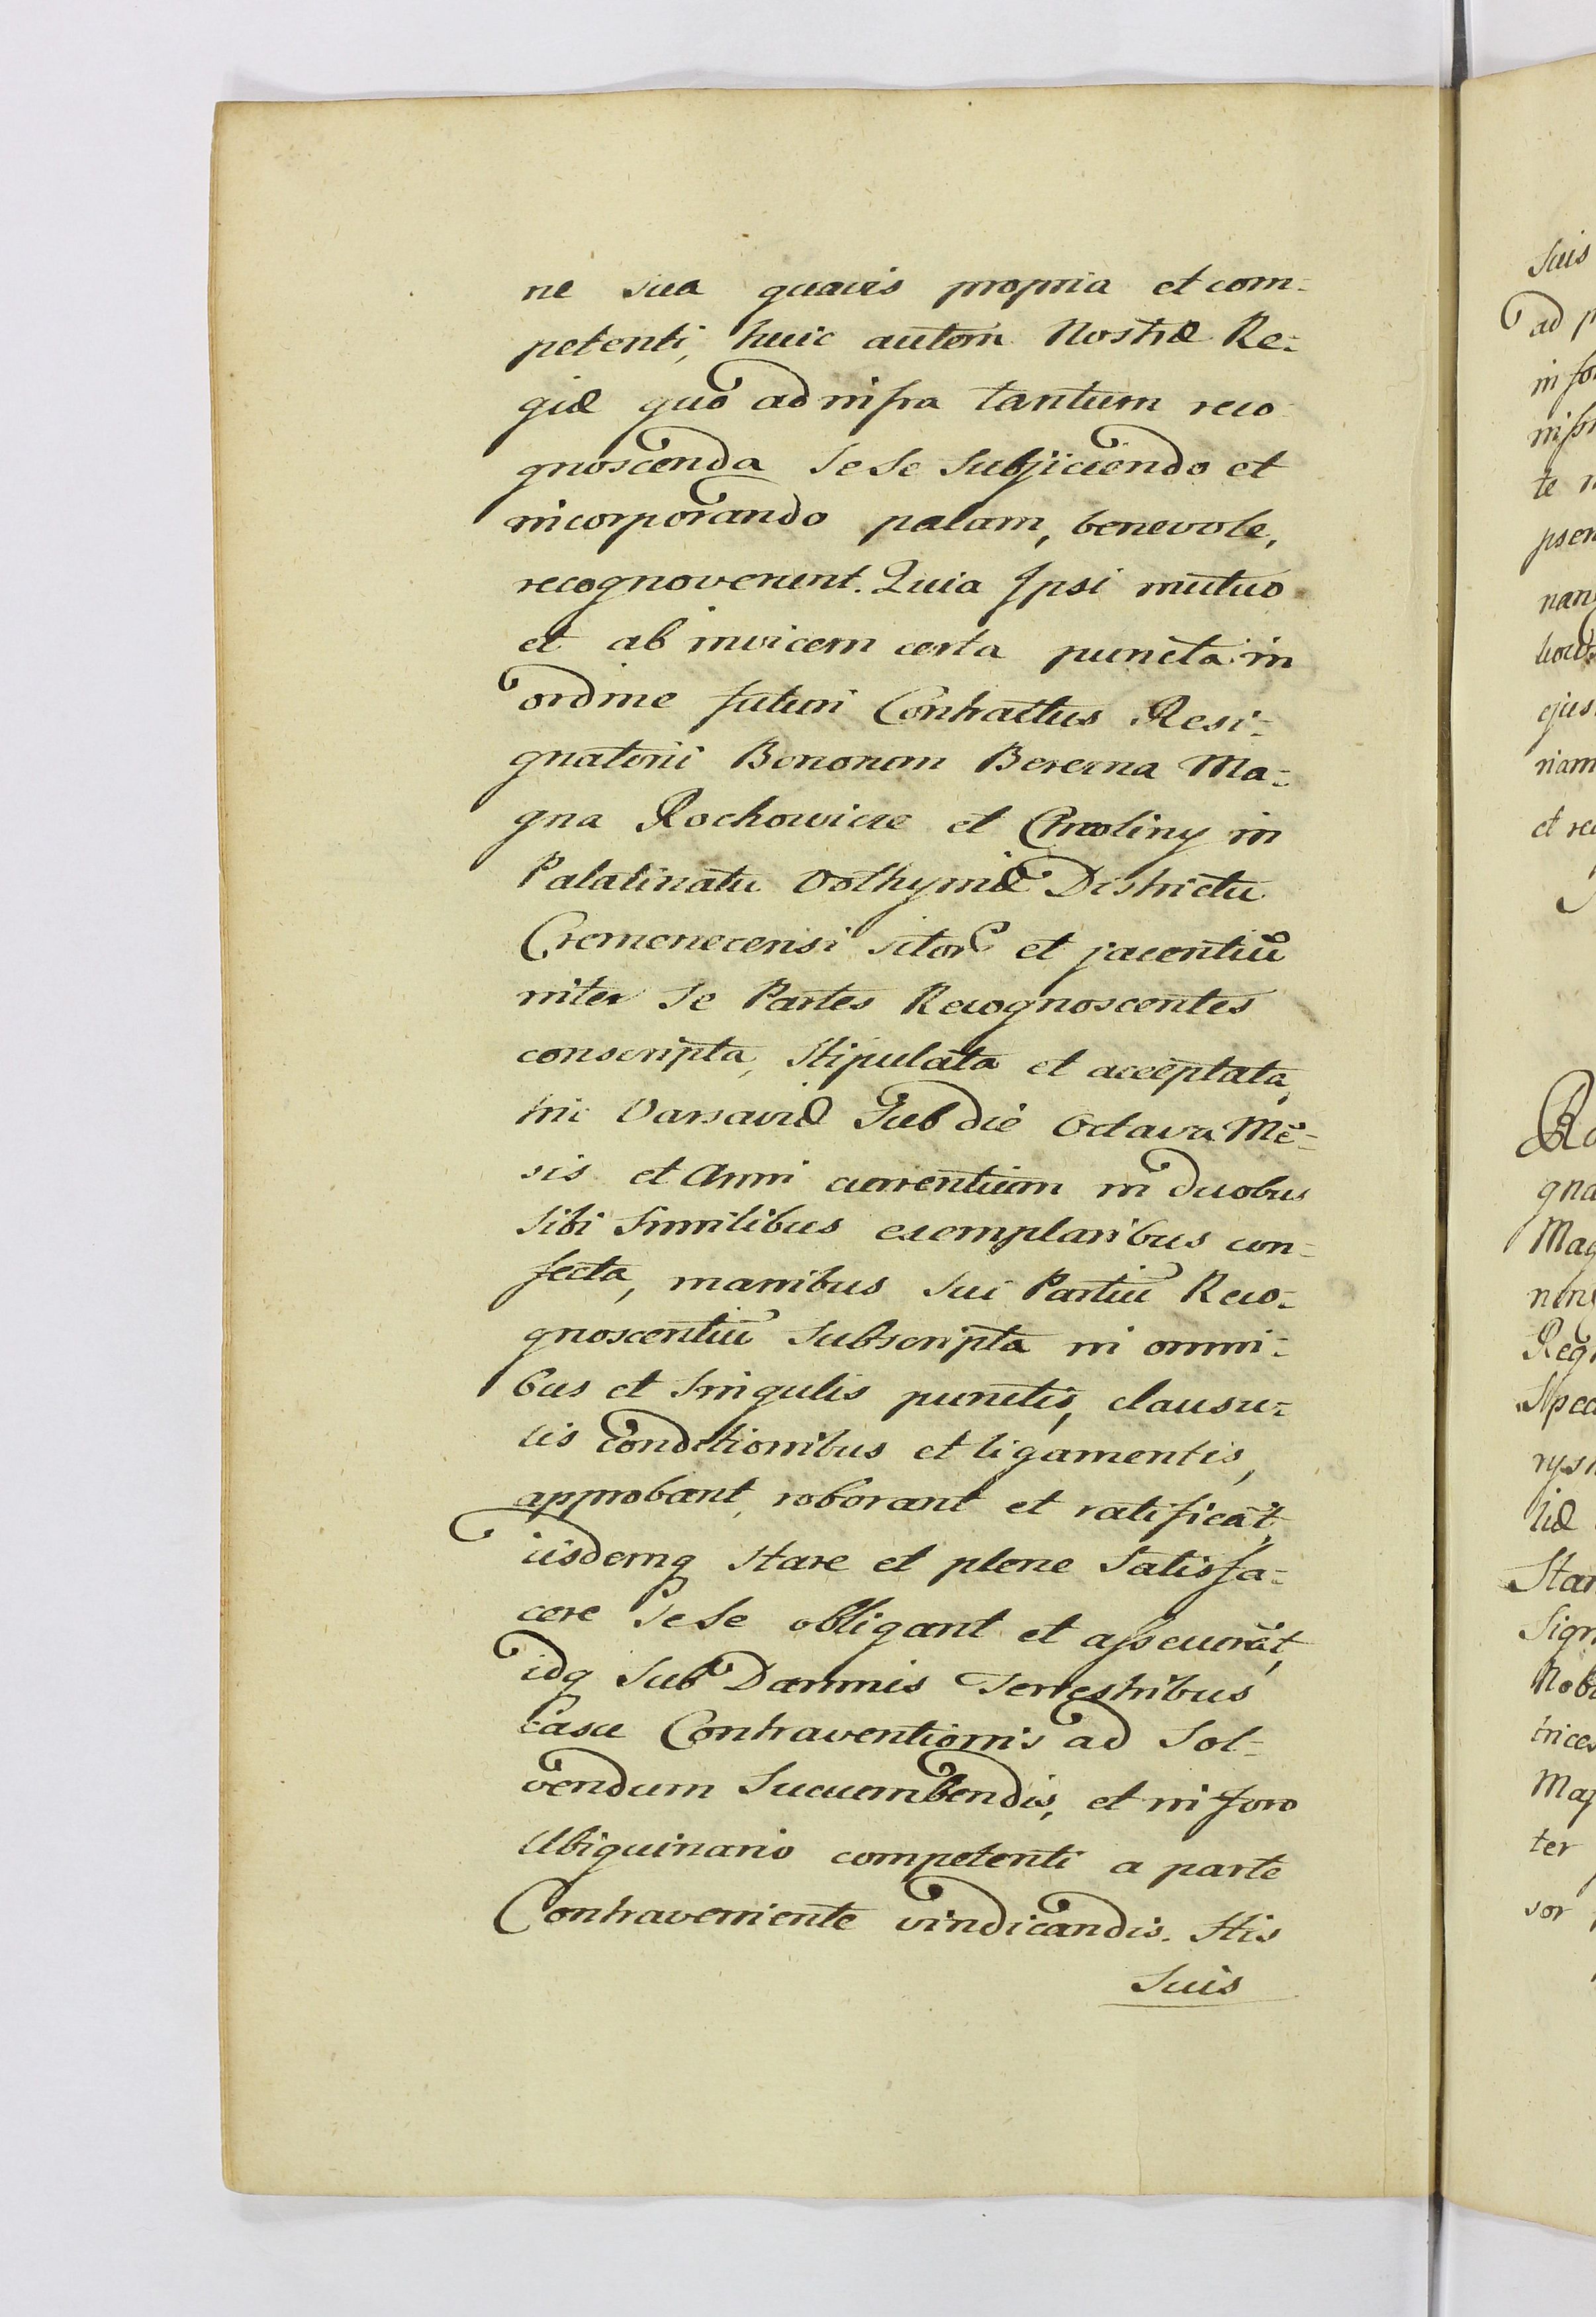 ne sua quavis propria et com-
petenti, huic autem Nostræ Re-
giæ quo ad infra tantum reco
gnoscenda Sese Subjiciendo et
incorporando palam, benevole,
recognoverunt. Quia Ipsi mutuo
et ab invicem certa puncta in
ordine futuri Contractus Resi-
gnatorii Bonorum Berezna Ma-
gna Rochowice et in
Palatinatu Volhyniæ Districtu
Cremenecensi sitor et jacentiū
inter Se Partes Recognoscentes
conscripta, Stipulata et acceptata,
hic Varsaviæ Sub die Octava Mē-
sis et Anni currentium in duobus
Sibi Similibus exemplaribus con-
fecta, manibus Sui Partiū Reco-
gnoscentiū Subscripta in omni-
bus et Singulis punctis, clausu-
lis Conditionibus et ligamentis,
approbant, roborant et ratificāt,
iisdemq Stare et plene Satisfa-
cere Sese obligant et assecurāt,
idq Sub Damnis terrestribus
casu Contraventionis ad Sol-
vendum Sucumbendis, et in foro
Ubiquinario competenti a parte
Contraveniente vindicandis. His
Suis
Suis
ad p
in fo
infr
te
psen
nan
ejus
riam
et re
gna
Mag
Reg
Spec
liæ
Star
Sign
Nobi
trices
Maj
ter
sor